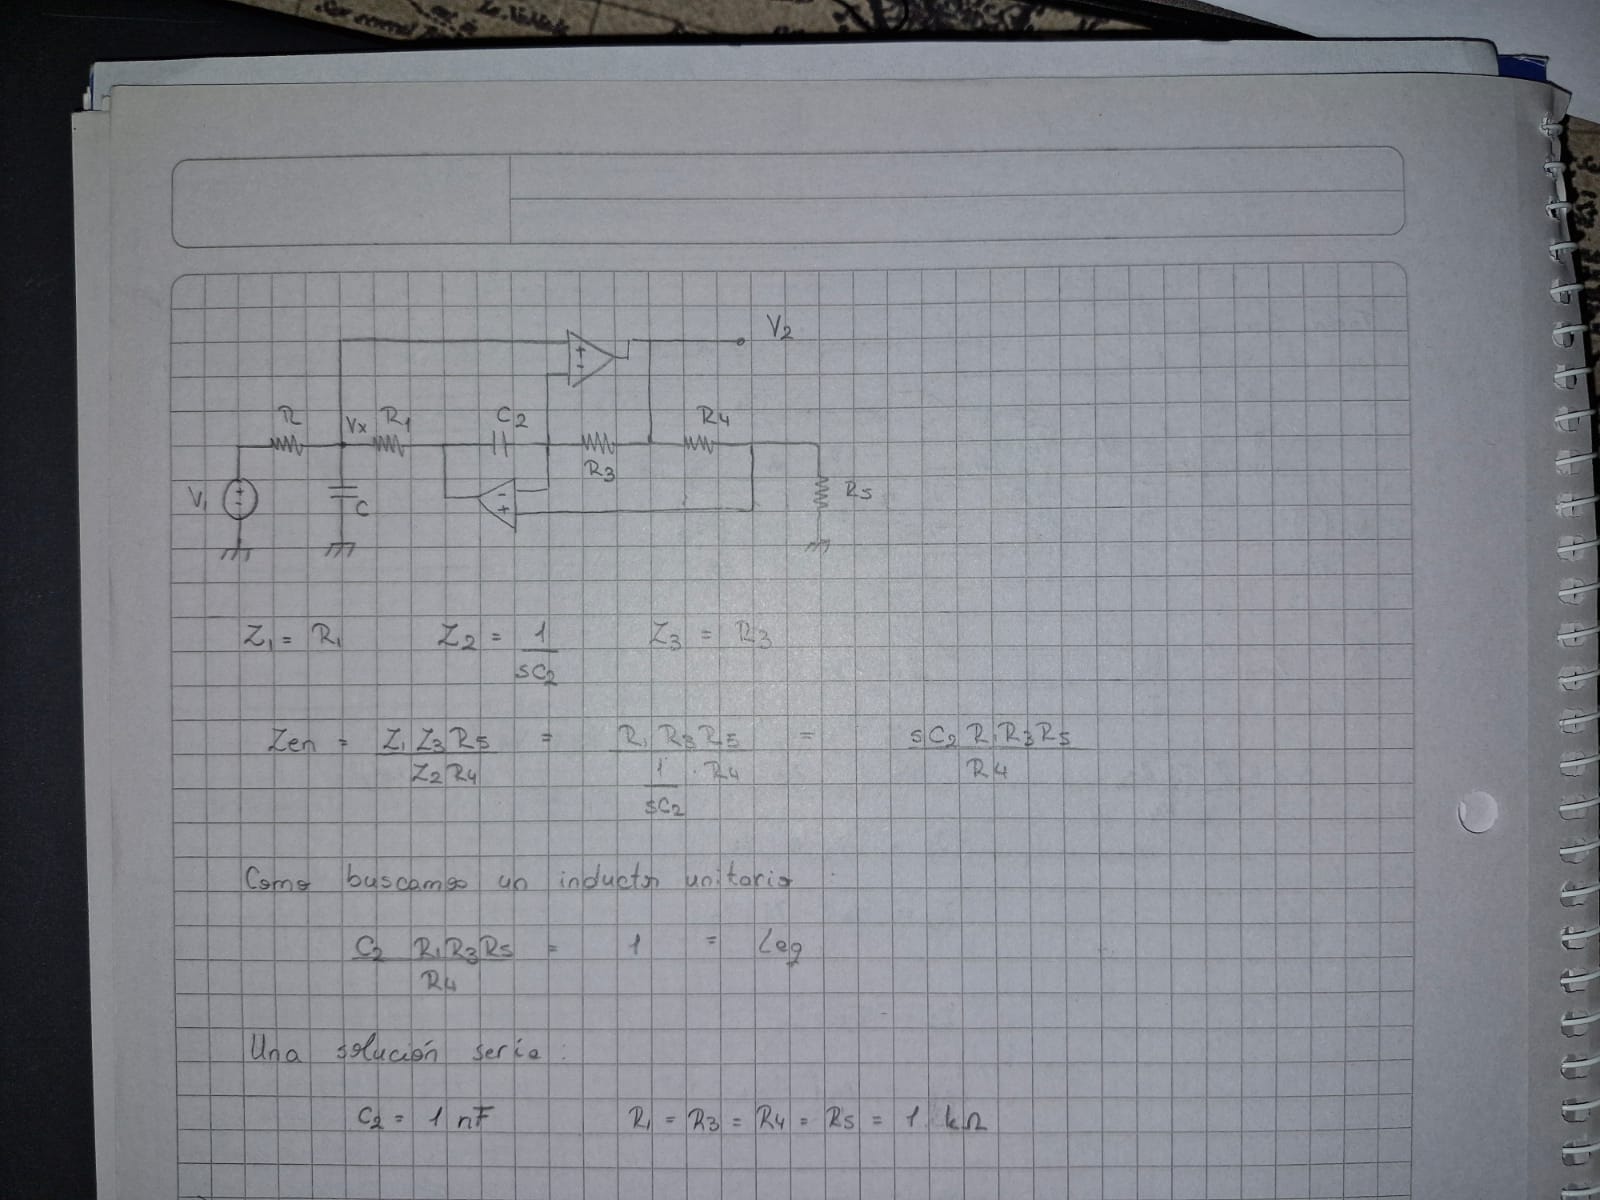 V2
R Vx R1 C2 R4
R3
V1 C R5
+ -
- +
+ -
Z1 = R1 Z2 = 1/sC2 Z3 = R3
Zen = Z1 Z3 R5 / Z2 R4 = R1 R3 R5 / (1/sC2 · R4) = sC2 R1 R3 R5 / R4
Como buscamos un inductor unitario :
C2 R1 R3 R5 / R4 = 1 = Leq
Una solución sería :
C2 = 1 nF R1 = R3 = R4 = R5 = 1 kΩ